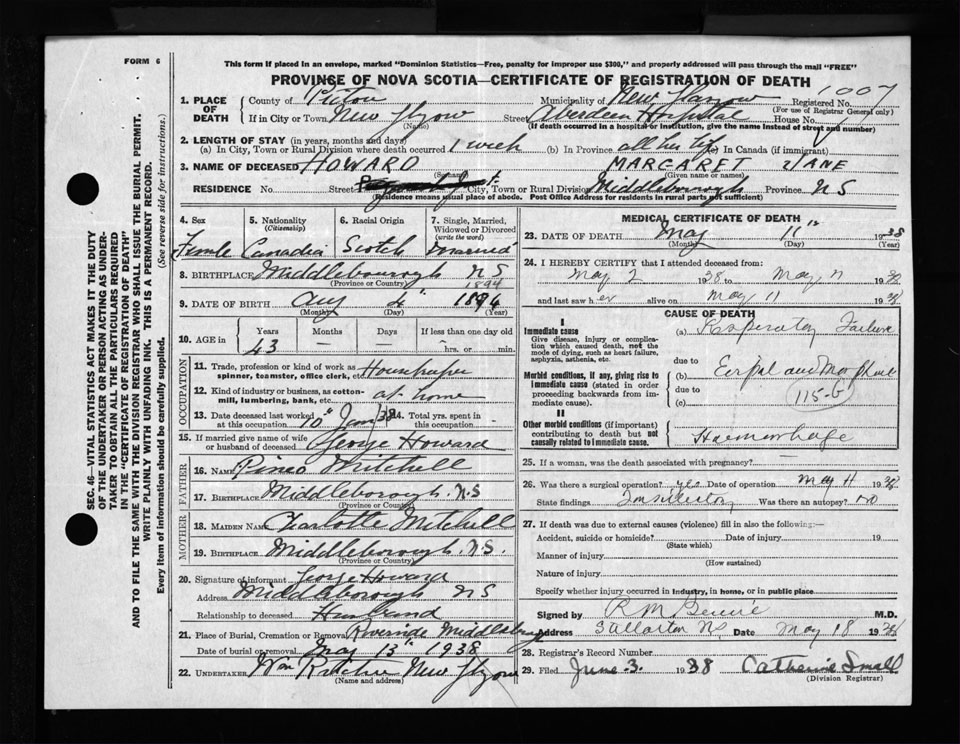 FORM 6
This form if placed in an envelope, marked "Dominion Statistics—Free, penalty for improper use $300," and properly addressed will pass through the mail "FREE"
PROVINCE OF NOVA SCOTIA—CERTIFICATE OF REGISTRATION OF DEATH
1. PLACE OF DEATH
County of Pictou Municipality of New Glasgow Registered No. 1007
(For use of Registrar General only)
If in City or Town New Glgow Street Aberdeen Hospital House No.
(Name) (If death occurred in a hospital or institution, give the name instead of street and number)
2. LENGTH OF STAY (in years, months and days)
(a) In City, Town or Rural Division where death occurred 1 week (b) In Province all her life (c) In Canada (if immigrant)
3. NAME OF DECEASED HOWARD MARGARET JANE
(Surname) (Given name or names)
RESIDENCE No. Street City, Town or Rural Division Middleborough Province N S
(Residence means usual place of abode. Post Office Address for residents in rural parts not sufficient)
SEC. 46—VITAL STATISTICS ACT MAKES IT THE DUTY
OF THE UNDERTAKER OR PERSON ACTING AS UNDER-
TAKER TO OBTAIN ALL THE PARTICULARS REQUIRED
IN THE "CERTIFICATE OF REGISTRATION OF DEATH"
AND TO FILE THE SAME WITH THE DIVISION REGISTRAR WHO SHALL ISSUE THE BURIAL PERMIT.
WRITE PLAINLY WITH UNFADING INK. THIS IS A PERMANENT RECORD.
Every item of information should be carefully supplied. (See reverse side for instructions.)
4. Sex 5. Nationality 6. Racial Origin 7. Single, Married,
(Citizenship) Widowed or Divorced
(write the word)
Female Canadia Scotch married
8. BIRTHPLACE Middleborough N S
(Province or Country) 1894
9. DATE OF BIRTH Aug 4" 1894
(Month) (Day) (Year)
10. AGE in Years Months Days If less than one day old
43 — — hrs. or min.
OCCUPATION
11. Trade, profession or kind of work as Housekeeper
spinner, teamster, office clerk, etc.
12. Kind of industry or business, as cotton- at home
mill, lumbering, bank, etc.
13. Date deceased last worked 14. Total yrs. spent in
at this occupation 10" Jan 38 this occupation
15. If married give name of wife
or husband of deceased George Howard
FATHER
16. NAME Pineo Mitchell
17. BIRTHPLACE Middleborough N.S
(Province or Country)
MOTHER
18. MAIDEN NAME Charlotte Mitchell
19. BIRTHPLACE Middleborough. N.S.
(Province or Country)
20. Signature of informant George Howard
Address Middleborough N S
Relationship to deceased Husband
21. Place of Burial, Cremation or Removal Riverside
Date of burial or removal May 13" 1938
22. UNDERTAKER New Glgow
(Name and address)
MEDICAL CERTIFICATE OF DEATH
23. DATE OF DEATH May 11" 1938
(Month) (Day) (Year)
24. I HEREBY CERTIFY that I attended deceased from:
May 2 1938 to May 11 1938
and last saw her alive on May 11 1938
CAUSE OF DEATH
I
Immediate cause (a) Respiratory Failure
Give disease, injury or compli-
cation which caused death, not the
mode of dying, such as heart failure,
asphyxia, asthenia, etc. due to
Morbid conditions, if any, giving rise to (b)
immediate cause (stated in order due to (115-b)
proceeding backwards from im- (c)
mediate cause).
II
Other morbid conditions (if important)
contributing to death but not Haemorrhage
causally related to immediate cause.
25. If a woman, was the death associated with pregnancy? —
26. Was there a surgical operation? yes Date of operation May 11 1938
State findings Tonsillectomy Was there an autopsy? no
27. If death was due to external causes (violence) fill in also the following:—
Accident, suicide or homicide? Date of injury 19
(State which)
Manner of injury
(How sustained)
Nature of injury
Specify whether injury occurred in industry, in home, or in public place
Signed by M.D.
Address Date May 18 1938
28. Registrar's Record Number
29. Filed June 3. 1938 Catherine Small
(Division Registrar)